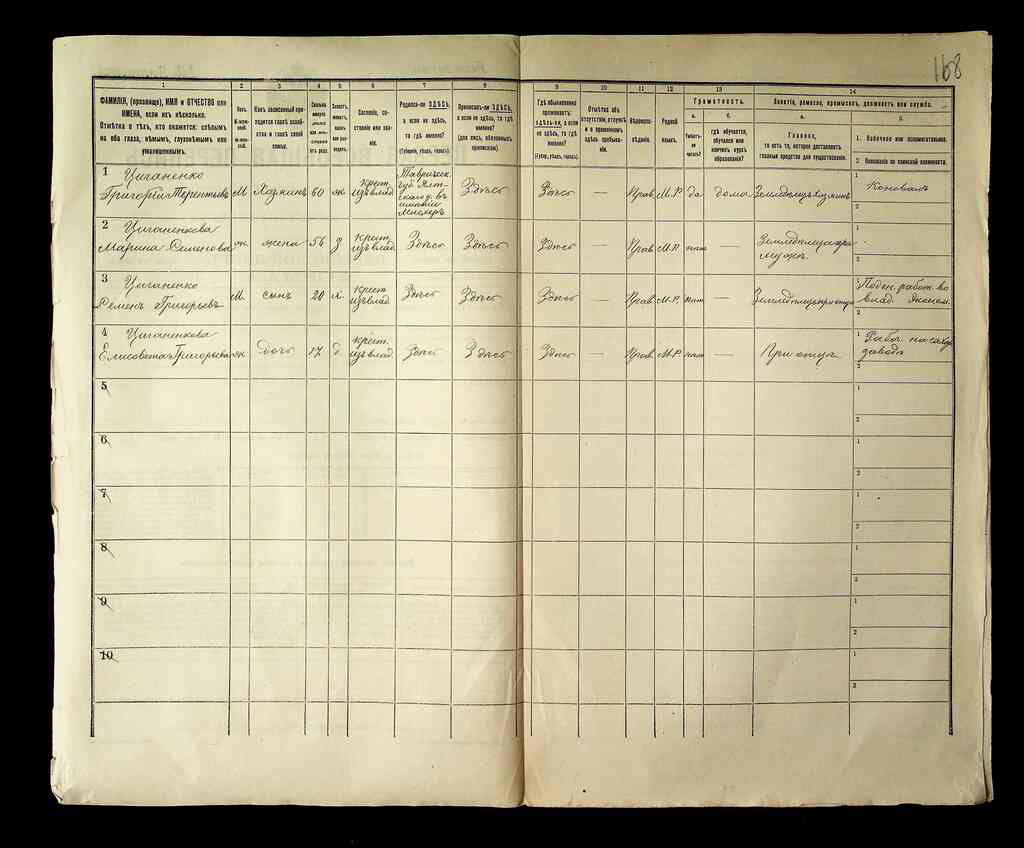 168
1
2
3
4
5
6
7
8
9
10
11
12
13
14
ФАМИЛІЯ, (прозвище), ИМЯ и ОТЧЕСТВО или
ИМЕНА, если ихъ нѣсколько.
Отмѣтка о тѣхъ, кто окажется: слѣпымъ
на оба глаза, нѣмымъ, глухонѣмымъ или
умалишеннымъ.
Полъ.
М.-мужской.
Ж.-женскій.
Какъ записанный приходится
главѣ хозяйства
и главѣ своей
семьи.
Сословіе, состояніе
или званіе.
Родился-ли ЗДѢСЬ,
а если не здѣсь,
то гдѣ именно?
(Губернія, уѣздъ, городъ).
Приписанъ-ли ЗДѢСЬ,
а если не здѣсь, то гдѣ
именно?
(Для лицъ, обязанныхъ
припискою).
Гдѣ обыкновенно
проживаетъ:
здѣсь-ли, а если
не здѣсь, то гдѣ
именно?
(Губер., уѣздъ, городъ).
Отмѣтка объ
отсутствіи, отлучкѣ
и о временномъ
здѣсь пребываніи.
Вѣроисповѣданіе.
Родной
языкъ.
Грамотность.
а.
Умѣетъ-ли
читать?
б.
гдѣ обучается,
обучался или
кончилъ курсъ
образованія?
Занятіе, ремесло, промыселъ, должность или служба.
а.
Главное,
то есть то, которое доставляетъ
главныя средства для существованія.
б.
1. Побочное или вспомогательное.
2. Положеніе по воинской повинности.
1 Циганенко
Григорій Терентьевъ М Хозяинъ 60 ж. Крест. изъ влад. Таврическ. губ. Ялтскаго у. въ имѣніи Здѣсь Здѣсь — Прав. М.Р. да дома Земледѣлецъ 1 Коновалъ
2
2 Циганенкова
Марина Семенова ж. жена 56 з Крест. изъ влад. Здѣсь Здѣсь Здѣсь — Прав. М.Р. нѣт — Земледѣлица при мужѣ. 1
2
3 Циганенко
Семенъ Григорьевъ М. сынъ 20 х. Крест. изъ влад. Здѣсь Здѣсь Здѣсь — Прав. М.Р. нѣт — Земледѣлецъ при отцѣ 1 Поден. работ. во влад. Эконом.
2
4 Циганенкова
Елисовета Григорьева ж. дочь 17 д. Крест. изъ влад. Здѣсь Здѣсь Здѣсь — Прав. М.Р. нѣт — При отцѣ 1 Работ. на сахар. заводѣ
2
5
1
2
6
1
2
7
1
2
8
1
2
9
1
2
10
1
2